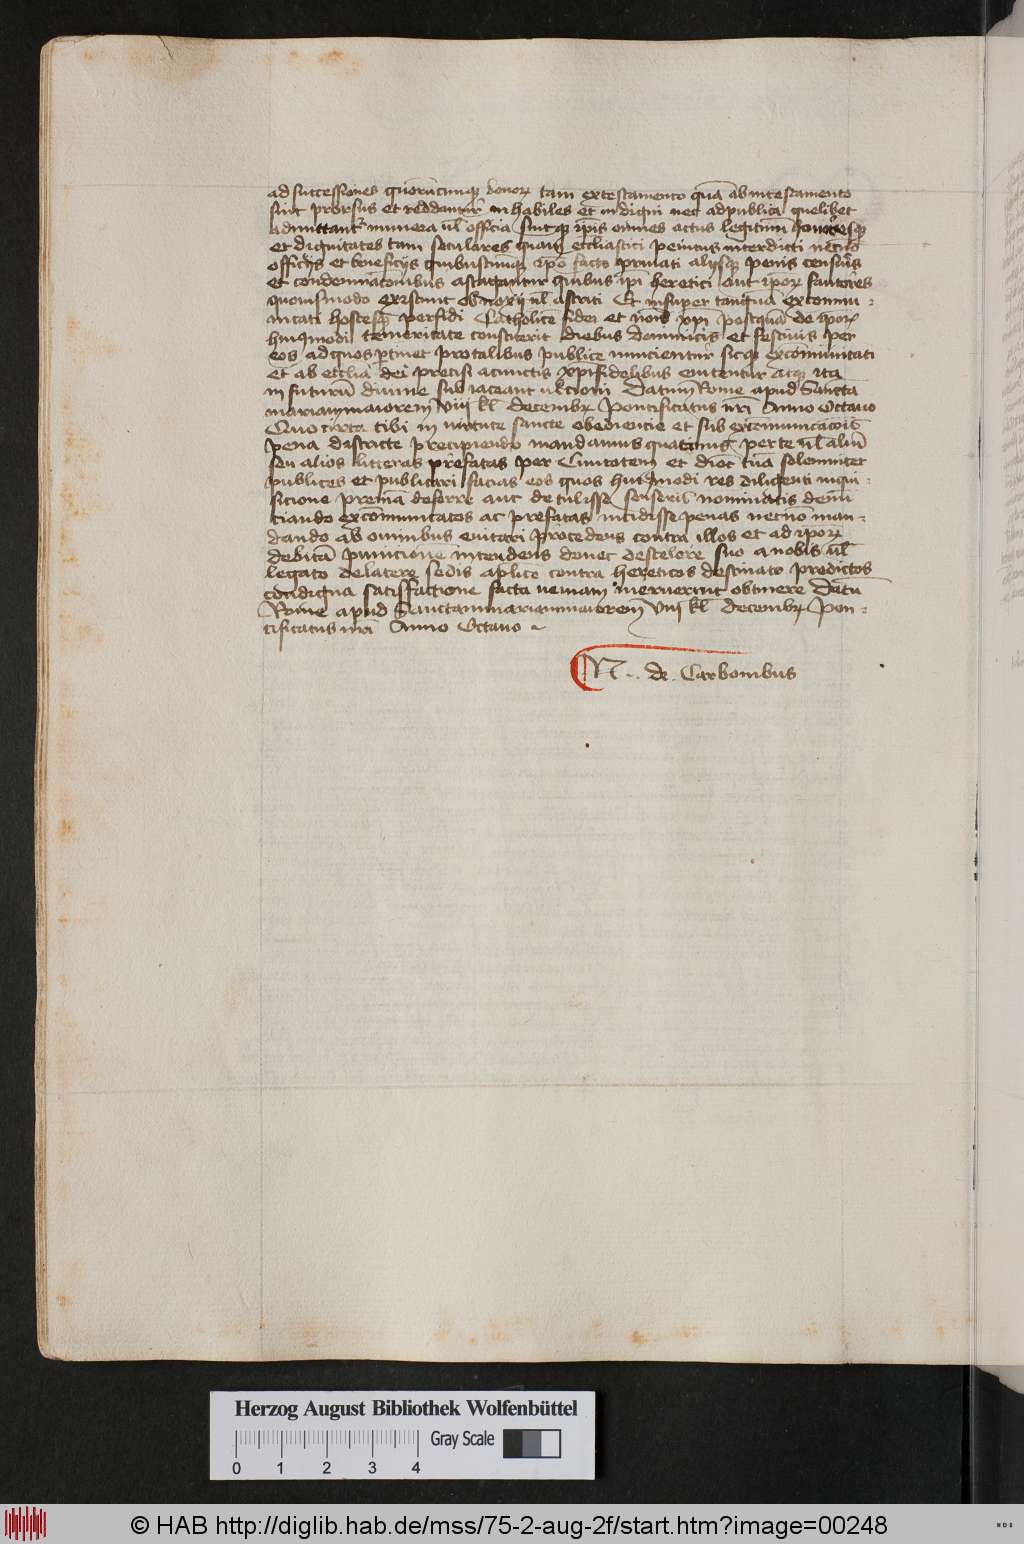 ad successiones quorūcumq̄ bonorꝝ tam extestamento quā ab intestamento
sint prorsus et reddantur inhabiles et indigni nec ad publica quelibet
admittant᷑ munera ul̄ officia sintq̄ ip̄is omnes actus legitimi honoresq̄
et dignitates tam seculares quam ecclīastici penitus interdicti necnō
officijs et beneficijs quibuscumq̄ ip̄o facto priuati alijsq̄ penis censuris
et condemnatōnibus astringantur quibus ip̄i heretici aut ip̄orꝝ fautores
quouismodo existunt obnoxij ul̄ astricti Et insuper tanquā excommu⸗
nicati hostesq̄ perfidi Catholice fidei et nōis xp̄i postquā de ip̄orꝝ
huiq̄modi temeritate constiterit diebus dominicis et festiuis per
eos ad quos p̄tinet pro talibus publice nuncientur sicq̄ excōmunicati
et ab eccl̄ia dei precisi a cunctis xp̄ifidelibus euitentur atq̄ ita
in futurū diuine subiaceant ulcioni Datum Rome apud Sanctā
mariam maiorem viij kl̄ decembrꝝ Pontificatus nr̄i Anno Octauo
Quo circa tibi in uirtute sancte obediencie et sub excōmunicacōis
pena districte precipiendo mandamus quatinus per te ul̄ aliū
seu alios litteras prefatas per Ciuitatem et dioc̄ tuā solemniter
publices et publicari facias eos quos hui9modi res diligenti inqui⸗
sicione premia deferre aut detulisse senseris nominatis denū
ciando excōmunicatos ac prefatas incidisse penas necnō man⸗
dando ab omnibus euitari procedens contra illos et ad ip̄orꝝ
debitā punicionē intendens donec de scelere suo a nobis ul̄
legato de latere sedis aplice contra hereticos destinato predictos
condigna satisfactione facta ueniam meruerint obtinere Datū
Rome apud Sanctam mariam maiorem viij kl̄ decembrꝝ Pon⸗
tificatus nr̄i Anno Octauo
N. de. Carbonibus
Herzog August Bibliothek Wolfenbüttel
Gray Scale
0 1 2 3 4
© HAB http://diglib.hab.de/mss/75-2-aug-2f/start.htm?image=00248